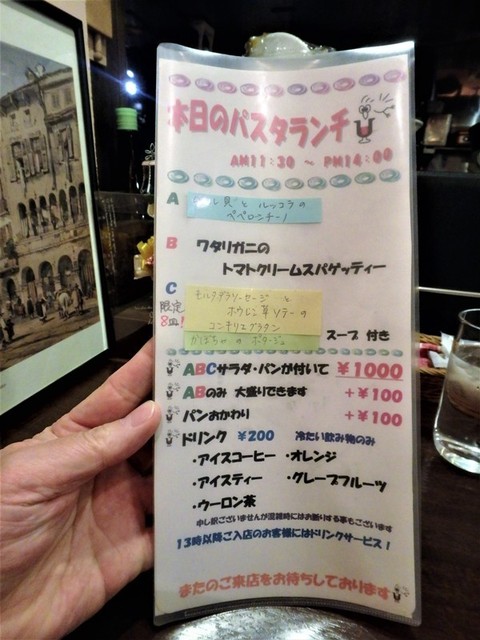 本日のパスタランチ
AM11:30 ～ PM14:00
A
貝 と ルッコラの
ペペロンチーノ
B ワタリガニの
トマトクリームスパゲッティー
C
限定
8皿!
モルタデラソーセージ と
ホウレン草 ソテーの
コンキリエグラタン
かぼちゃ の ポタージュ
スープ 付き
ABCサラダ・パンが付いて ￥1000
ABのみ 大盛りできます +￥100
パンおかわり +￥100
ドリンク ￥200 冷たい飲み物のみ
・アイスコーヒー ・オレンジ
・アイスティー ・グレープフルーツ
・ウーロン茶
申し訳ございませんが混雑時にはお断りする事もございます
13時以降ご入店のお客様にはドリンクサービス！
またのご来店をお待ちしております